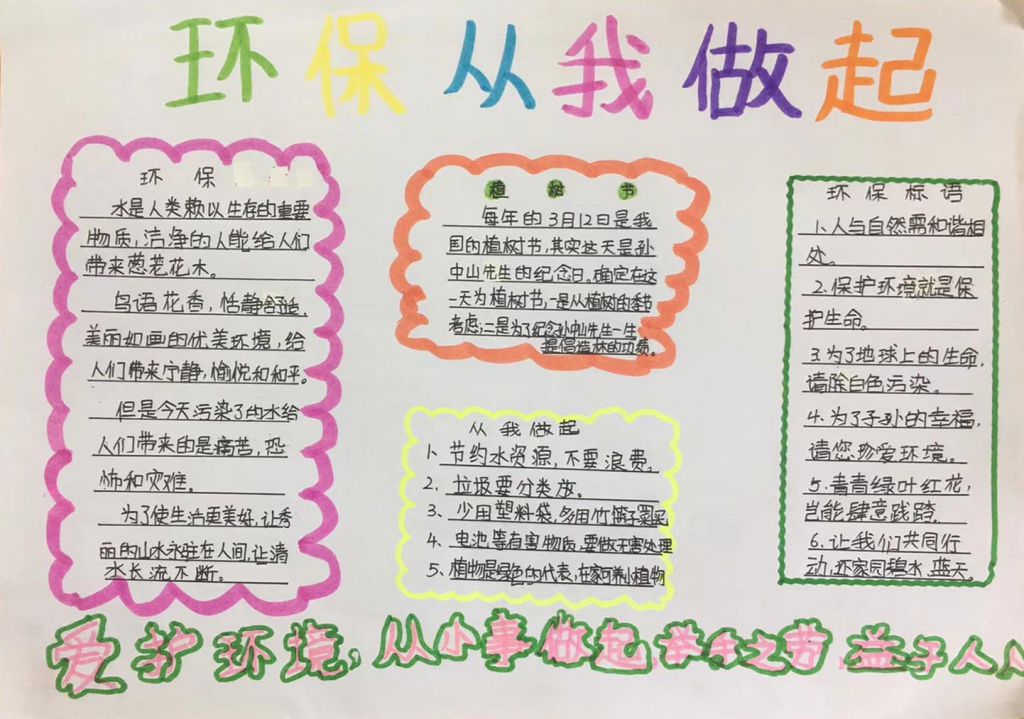 环保从我做起
环保
水是人类赖以生存的重要
物质,洁净的人能给人们
带来葱茏花木。
鸟语花香,恬静舒适,
美丽如画的优美环境,给
人们带来宁静,愉悦和和平。
但是今天污染了的水给
人们带来的是痛苦,恐
怖和灾难。
为了使生活更美好,让秀
丽的山水永驻在人间,让清
水长流不断。
植树节
每年的3月12日是我
国的植树节,其实这天是孙
中山先生的纪念日。确定在这
一天为植树节,一是从植树的季节
考虑;二是为了纪念孙中山先生一生
提倡造林的功绩。
从我做起
1、节约水资源,不要浪费。
2、垃圾要分类放。
3、少用塑料袋,多用竹篮子
4、电池等有害物质,要做无害处理
5、植物是绿色的代表,在家可养小植物
环保标语
1.人与自然需和谐相
处。
2.保护环境就是保
护生命。
3.为了地球上的生命,
请除白色污染。
4.为了子孙的幸福,
请您珍爱环境。
5.青青绿叶红花,
岂能肆意践踏.
6.让我们共同行
动,还家园碧水蓝天。
爱护环境,从小事做起,举手之劳,益于人人